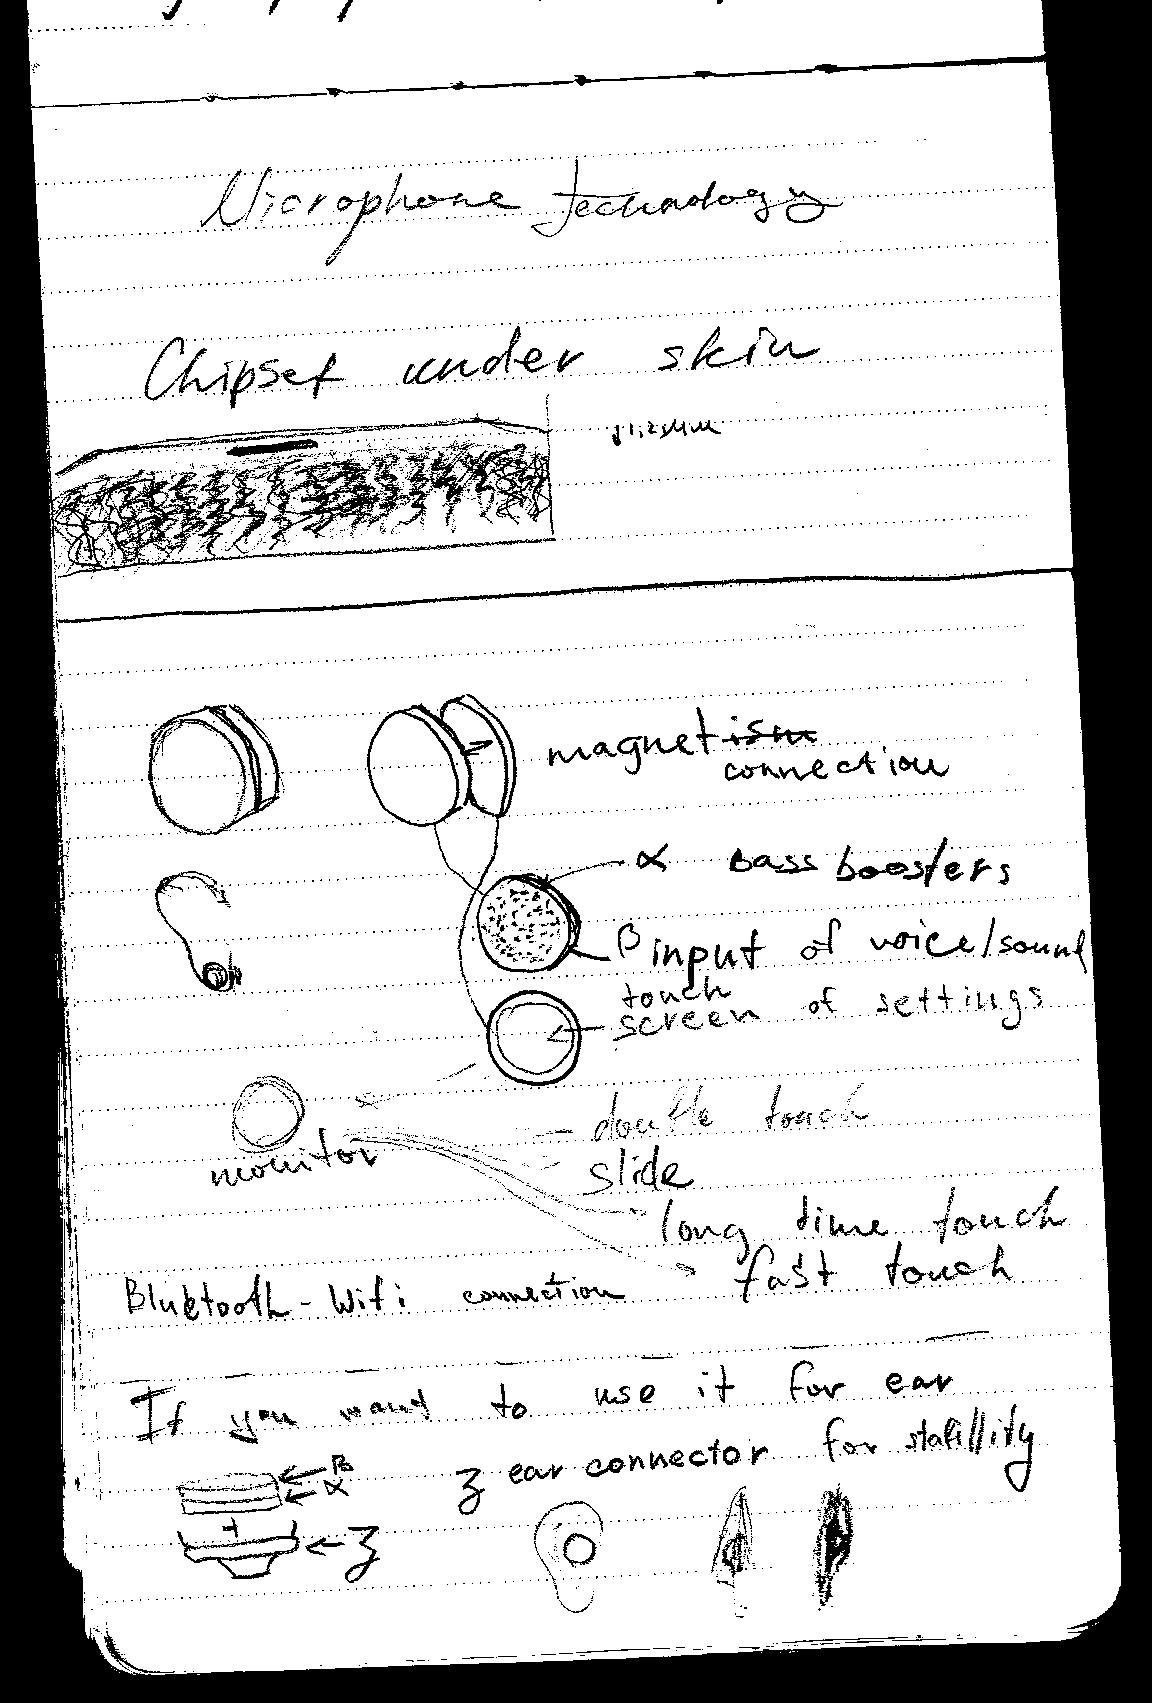 Microphone technology
Chipset under skin
magnetism
connection
α Bass boosters
β input of voice/sound
touch
screen of settings
monitor
- double touch
slide
long time touch
fast touch
Bluetooth - Wifi connection
If you want to use it for ear
β
α
ʒ ear connector for stabillity
ʒ